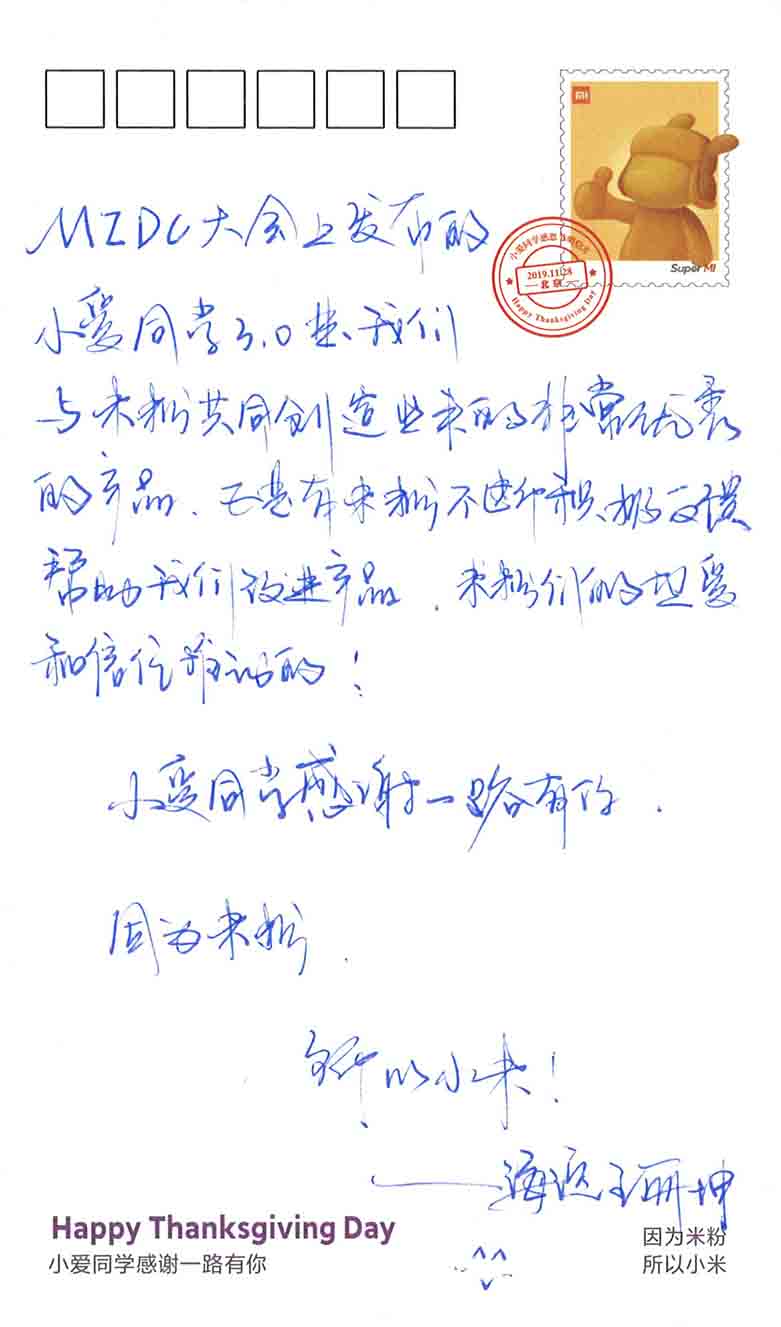 MI
Super MI
小爱同学感恩
2019.11.28
北京
Happy Thanksgiving Day
MIDC大会上发布的
小爱同学3.0是我们
与米粉共同创造出来的非常优秀
的产品、正是有米粉不断积极反馈
帮助我们改进产品、米粉们的
和信任推动的!
小爱同学感谢一路有你.
因为米粉.
所以小米!
——海滨王丽坤
Happy Thanksgiving Day
小爱同学感谢一路有你
因为米粉
所以小米